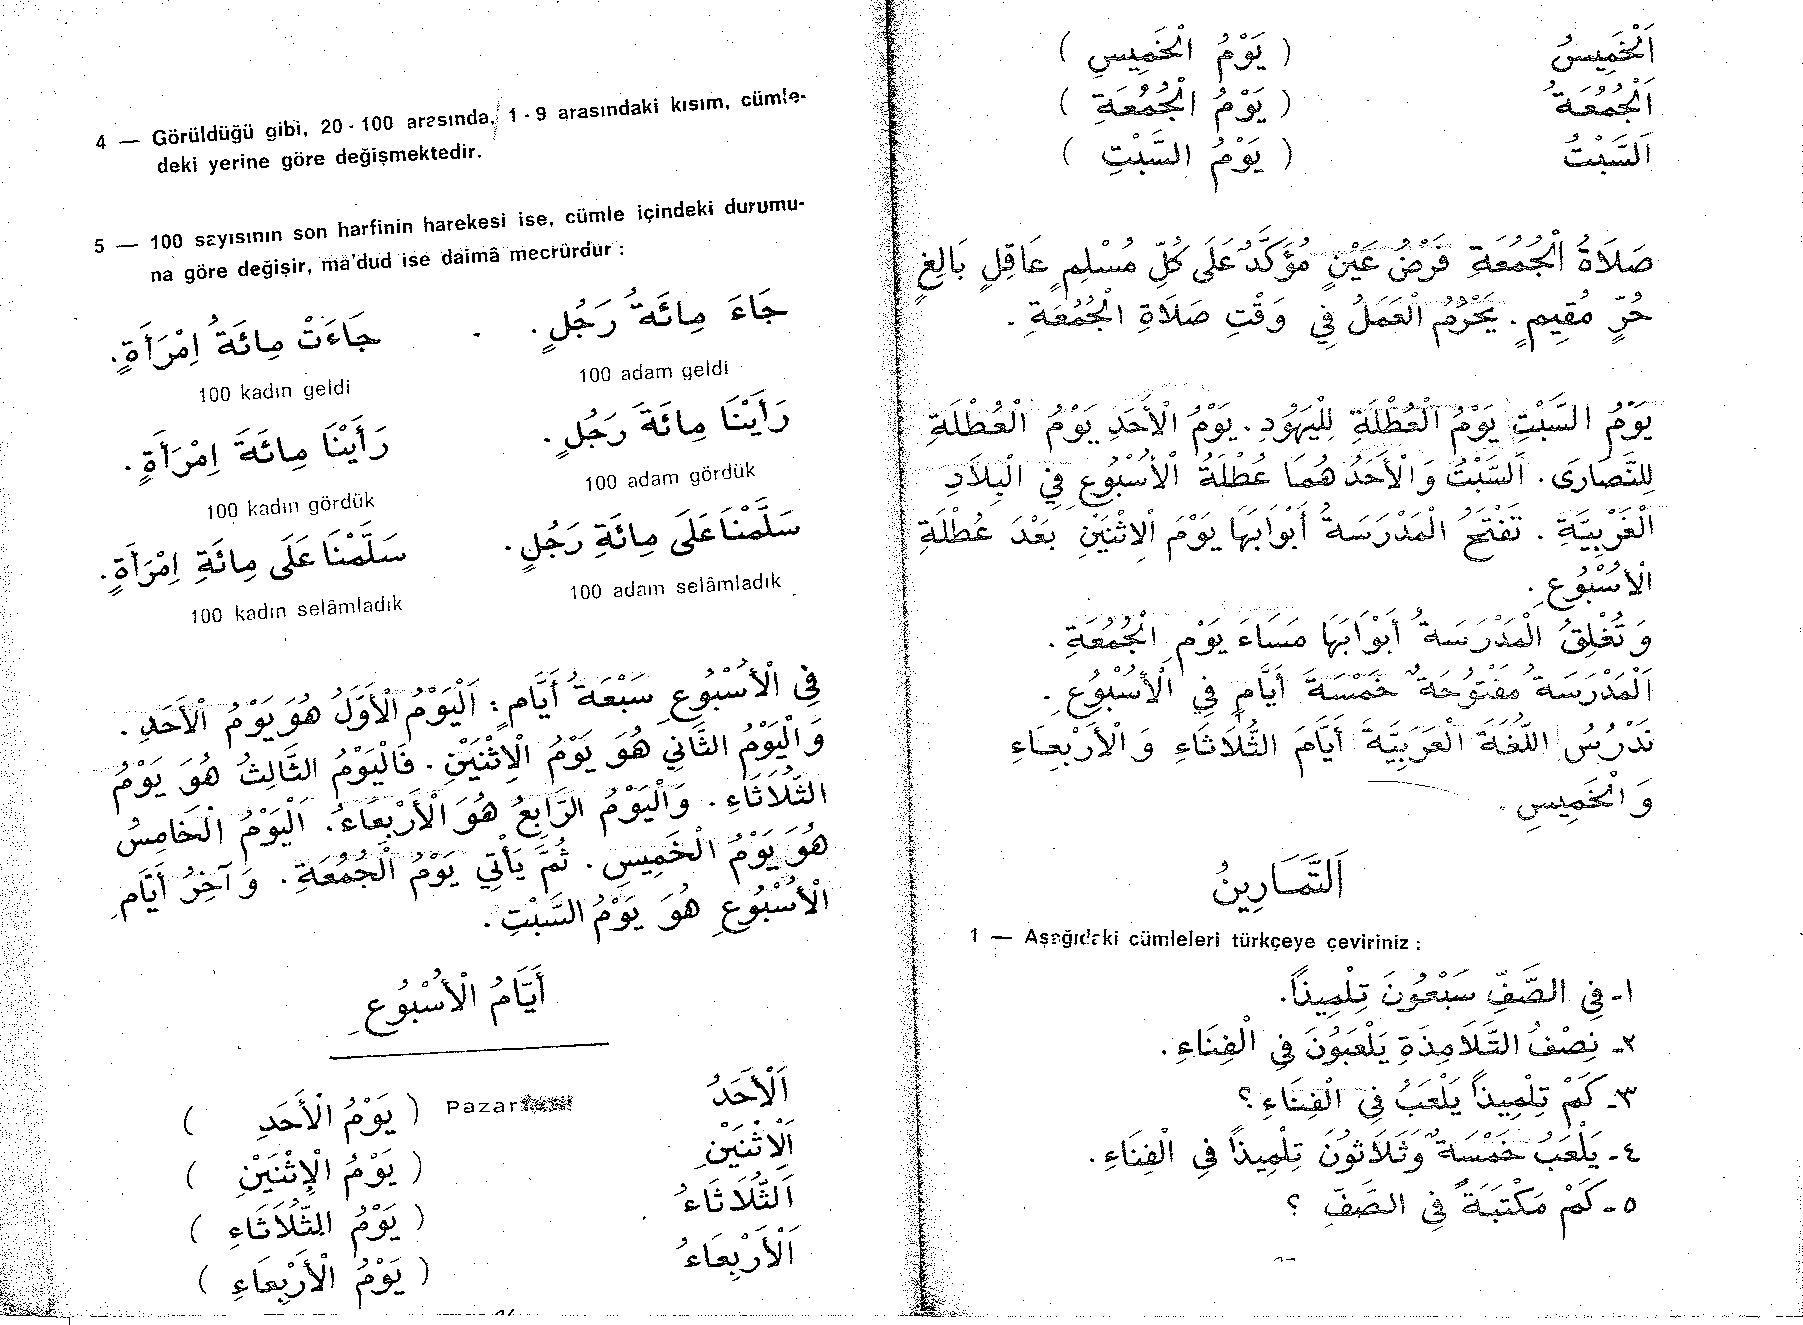 4 — Görüldüğü gibi, 20 - 100 arasında, 1 - 9 arasındaki kısım, cümle-
deki yerine göre değişmektedir.
5 — 100 sayısının son harfinin harekesi ise, cümle içindeki durumu-
na göre değişir, ma'dud ise daimâ mecrûrdur :
جَاءَ مِائَةُ رَجُلٍ. جَاءَتْ مِائَةُ اِمْرَأَةٍ.
100 adam geldi 100 kadın geldi
رَأَيْنَا مِائَةَ رَجُلٍ. رَأَيْنَا مِائَةَ اِمْرَأَةٍ.
100 adam gördük 100 kadın gördük
سَلَّمْنَا عَلَى مِائَةِ رَجُلٍ. سَلَّمْنَا عَلَى مِائَةِ اِمْرَأَةٍ.
100 adam selâmladık 100 kadın selâmladık
فِي الْأُسْبُوعِ سَبْعَةُ أَيَّامٍ : اَلْيَوْمُ الْأَوَّلُ هُوَ يَوْمُ الْأَحَدِ.
وَالْيَوْمُ الثَّانِي هُوَ يَوْمُ الْاِثْنَيْنِ. فَالْيَوْمُ الثَّالِثُ هُوَ يَوْمُ
الثَّلَاثَاءِ. وَالْيَوْمُ الرَّابِعُ هُوَ الْأَرْبِعَاءُ. اَلْيَوْمُ الْخَامِسُ
هُوَ يَوْمُ الْخَمِيسِ. ثُمَّ يَأْتِي يَوْمُ الْجُمُعَةِ. وَآخِرُ أَيَّامِ
الْأُسْبُوعِ هُوَ يَوْمُ السَّبْتِ.
أَيَّامُ الْأُسْبُوعِ
اَلْأَحَدُ Pazar ( يَوْمُ الْأَحَدِ )
اَلْاِثْنَيْنِ ( يَوْمُ الْإِثْنَيْنِ )
اَلثَّلَاثَاءُ ( يَوْمُ الثَّلَاثَاءِ )
اَلْأَرْبِعَاءُ ( يَوْمُ الْأَرْبِعَاءِ )
اَلْخَمِيسُ ( يَوْمُ الْخَمِيسِ )
اَلْجُمُعَةُ ( يَوْمُ الْجُمُعَةِ )
اَلسَّبْتُ ( يَوْمُ السَّبْتِ )
صَلَاةُ الْجُمُعَةِ فَرْضُ عَيْنٍ مُؤَكَّدٌ عَلَى كُلِّ مُسْلِمٍ عَاقِلٍ بَالِغٍ
حُرٍّ مُقِيمٍ. يَحْرُمُ الْعَمَلُ فِي وَقْتِ صَلَاةِ الْجُمُعَةِ.
يَوْمُ السَّبْتِ يَوْمُ الْعُطْلَةِ لِلْيَهُودِ. يَوْمُ الْأَحَدِ يَوْمُ الْعُطْلَةِ
لِلنَّصَارَى. اَلسَّبْتُ وَالْأَحَدُ هُمَا عُطْلَةُ الْأُسْبُوعِ فِي الْبِلَادِ
الْغَرْبِيَّةِ. تَفْتَحُ الْمَدْرَسَةُ أَبْوَابَهَا يَوْمَ الْاِثْنَيْنِ بَعْدَ عُطْلَةِ
الْأُسْبُوعِ.
وَتُغْلِقُ الْمَدْرَسَةُ أَبْوَابَهَا مَسَاءَ يَوْمِ الْجُمُعَةِ.
اَلْمَدْرَسَةُ مَفْتُوحَةٌ خَمْسَةَ أَيَّامٍ فِي الْأُسْبُوعِ.
نَدْرُسُ اللُّغَةَ الْعَرَبِيَّةَ أَيَّامَ الثُّلَاثَاءِ وَالْأَرْبِعَاءِ
وَالْخَمِيسِ.
اَلتَّمَارِينُ
1 — Aşağıdaki cümleleri türkçeye çeviriniz :
١- فِي الصَّفِّ سَبْعُونَ تِلْمِيذاً.
٢- نِصْفُ التَّلَامِذَةِ يَلْعَبُونَ فِي الْفِنَاءِ.
٣- كَمْ تِلْمِيذاً يَلْعَبُ فِي الْفِنَاءِ؟
٤- يَلْعَبُ خَمْسَةٌ وَثَلَاثُونَ تِلْمِيذاً فِي الْفِنَاءِ.
٥- كَمْ مَكْتَبَةً فِي الصَّفِّ ؟